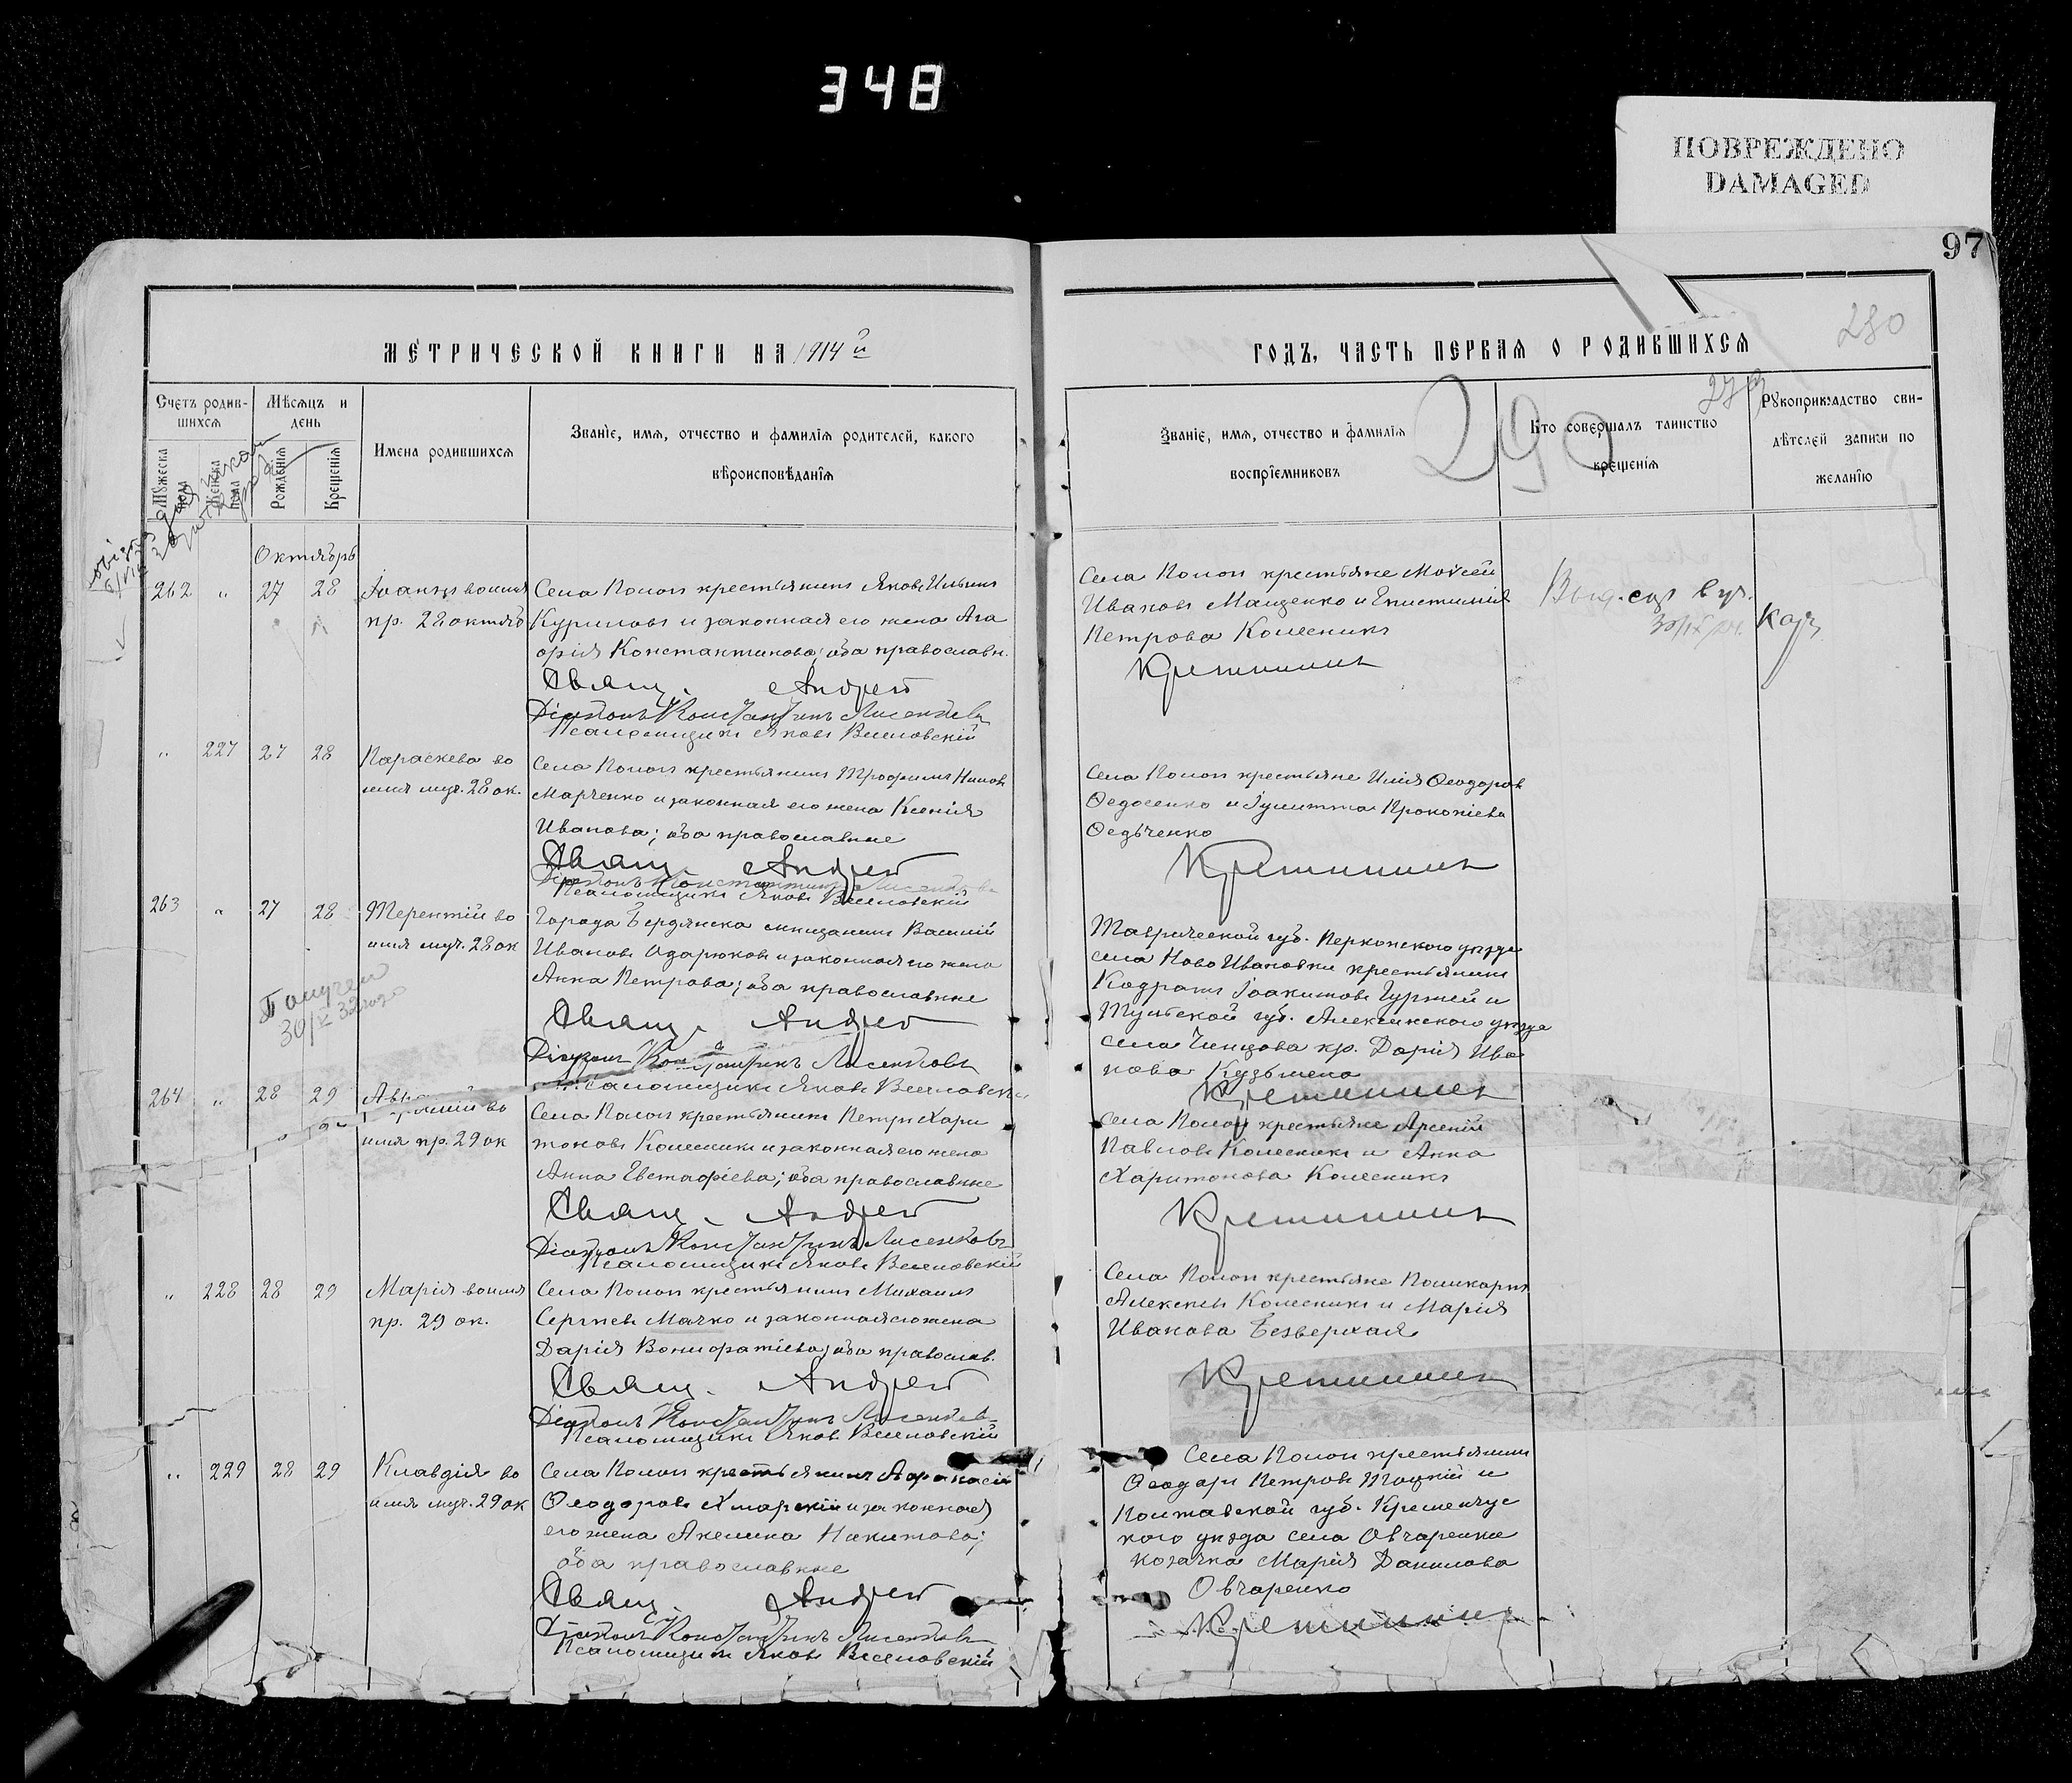 348
ПОВРЕЖДЕНО
DAMAGED
97
280
290
МЕТРИЧЕСКОЙ КНИГИ НА 1914й
ГОДЪ, ЧАСТЬ ПЕРВАЯ О РОДИВШИХСЯ
Счетъ родив-
шихся
Мужеска пола
Женска пола
Мѣсяцъ и
день
Рожденія
Крещенія
Имена родившихся
Званіе, имя, отчество и фамилія родителей, какого
вѣроисповѣданія
Званіе, имя, отчество и фамилія
воспріемниковъ
Кто совершалъ таинство
крещенія
Рукоприкладство сви-
дѣтелей записи по
желанію
Октябрь
262 " 27 28
Іоаннъ во имя
пр. 28 октяб
Села Попои крестьянинъ Яковъ Ильинъ
Куриловъ и законная его жена Ага
фія Константинова; оба православн.
Свящ. Андрей
Діаконъ Константинъ Лисенковъ
Псаломщикъ Яковъ Веселовскій
Села Попои крестьяне Моисей
Ивановъ Мащенко и Епистимія
Петрова Колесникъ
Крешининъ
" 227 27 28
Параскева во
имя муч. 28 ок.
Села Попои крестьянинъ Трофимъ Ниловъ
Марченко и законная его жена Ксенія
Иванова; оба православные
Свящ. Андрей
Діаконъ Константинъ Лисенковъ
Псаломщикъ Яковъ Веселовскій
Села Попои крестьяне Илія Ѳеодоровъ
Ѳедосенко и Іулитта Прокопіева
Ѳедьченко
Крешининъ
263 " 27 28
Терентій во
имя муч. 28 ок
Города Бердянска мѣщанинъ Василій
Ивановъ Одарюковъ и законная его жена
Анна Петрова; оба православные
Свящ. Андрей
Діаконъ Константинъ Лисенковъ
Псаломщикъ Яковъ Веселовскій
Таврической губ. Перекопского уѣзда
села Ново Ивановки крестьянинъ
Кодратъ Іоакимовъ Гуржей и
Тульской губ. Алексинского уѣзда
села кр. Дарія Ива
нова Кузьмена
Крешининъ
264 " 28 29
имя пр. 29 ок
Села Попои крестьянинъ Петръ Хари
тоновъ Колесникъ и законная его жена
Анна Евстафіева; оба православные
Свящ. Андрей
Діаконъ Константинъ Лисенковъ
Псаломщикъ Яковъ Веселовскій
Села Попои крестьяне Арсеній
Павловъ Колесникъ и Анна
Харитонова Колесникъ
Крешининъ
" 228 28 29
Марія во имя
пр. 29 ок.
Села Попои крестьянинъ Михаилъ
Сергѣевъ Мачко и законная его жена
Дарія Вонифатіева; оба православ.
Свящ. Андрей
Діаконъ Константинъ Лисенковъ
Псаломщикъ Яковъ Веселовскій
Села Попои крестьяне Поликарпъ
Алексѣевъ Колесникъ и Марія
Иванова Безверхая
Крешининъ
" 229 28 29
Клавдія во
имя муч. 29 ок
Села Попои крестьянинъ Афанасій
Ѳеодоровъ Хмарскій и законная
его жена Акелина Никитова;
оба православные
Свящ. Андрей
Діаконъ Константинъ Лисенковъ
Псаломщикъ Яковъ Веселовскій
Села Попои крестьянинъ
Ѳеодоръ Петровъ Тоцкій и
Полтавской губ. Кременчуг
кого уѣзда села Овчаренки
козачка Марія Данилова
Овчаренко
Крешининъ